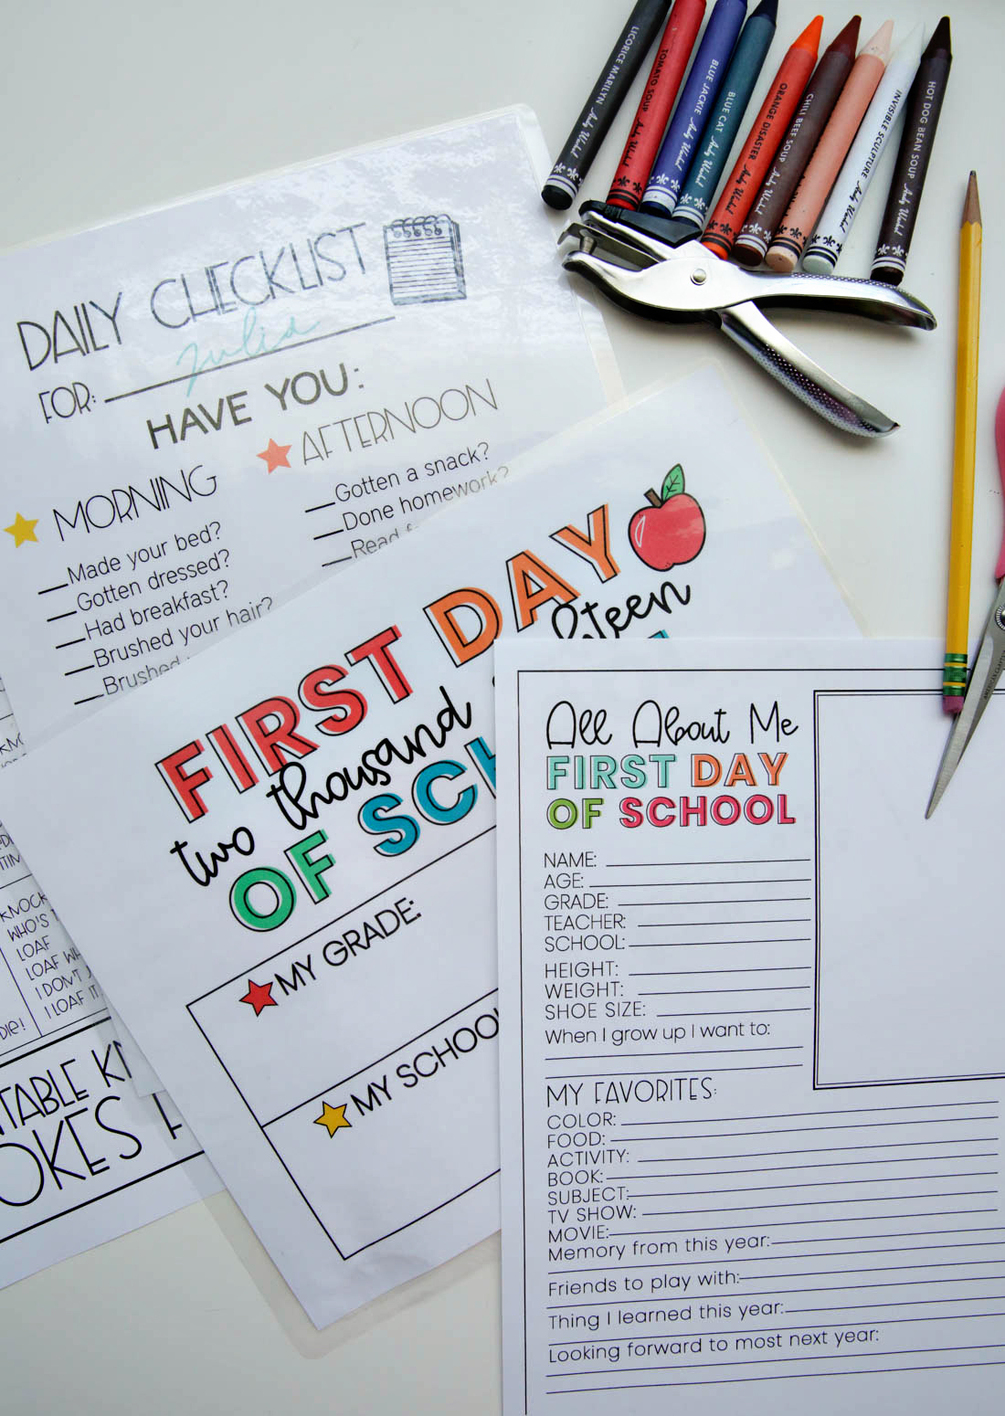 LICORICE MARILYN
TOMATO SOUP Andy Warhol
BLUE JACKIE Andy Warhol
BLUE CAT Andy Warhol
ORANGE DISASTER Andy Warhol
CHILI BEEF SOUP Andy Warhol
INVISIBLE SCULPTURE Andy Warhol
HOT DOG BEAN SOUP Andy Warhol
DAILY CHECKLIST
FOR: Julia
HAVE YOU:
MORNING
Made your bed?
Gotten dressed?
Had breakfast?
Brushed your hair?
Brushed
AFTERNOON
Gotten a snack?
Done homework?
Read
FIRST DAY
two thousand
OF SCH
MY GRADE:
MY SCHOO
KNOCK
WHO'S
LOAF
LOAF WH
I DON'T
I LOAF IT
DIE!
TABLE KN
OKES
All About Me
FIRST DAY
OF SCHOOL
NAME:
AGE:
GRADE:
TEACHER:
SCHOOL:
HEIGHT:
WEIGHT:
SHOE SIZE:
When I grow up I want to:
MY FAVORITES:
COLOR:
FOOD:
ACTIVITY:
BOOK:
SUBJECT:
TV SHOW:
MOVIE:
Memory from this year:
Friends to play with:
Thing I learned this year:
Looking forward to most next year: